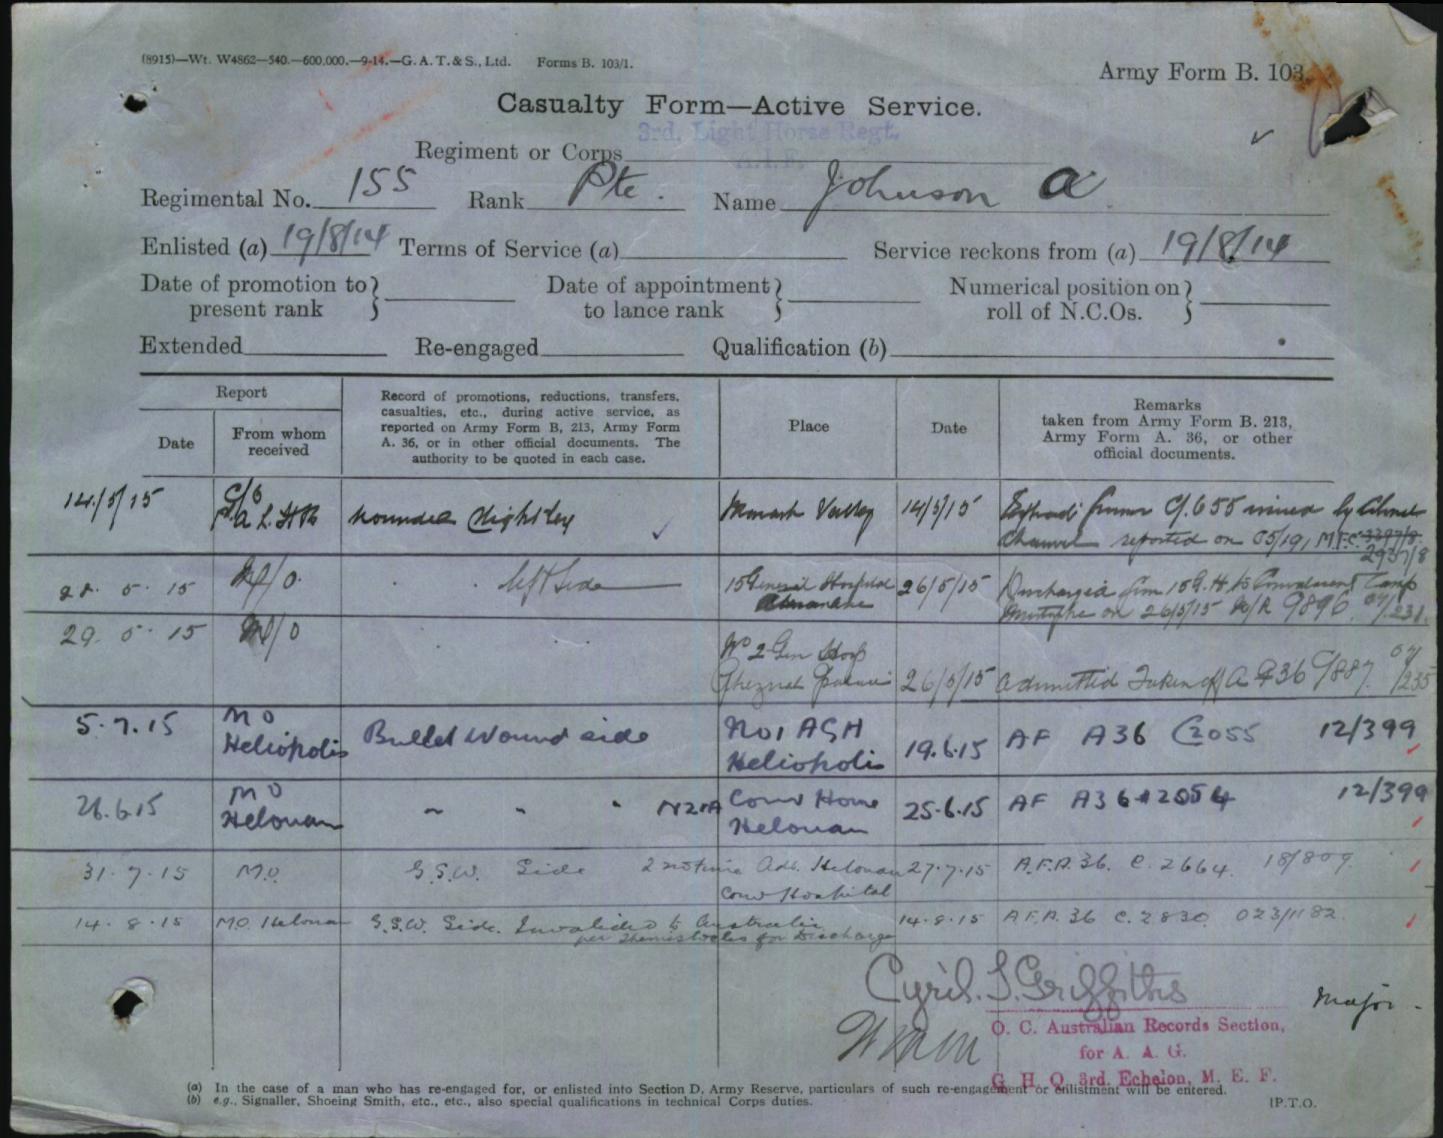 (8915)—Wt. W4862—540.—600,000.—9-14.—G. A. T. & S., Ltd. Forms B. 103/1.
Army Form B. 103.
Casualty Form—Active Service.
3rd. Light Horse Regt.
A.I.F.
Regiment or Corps
Regimental No. 155 Rank Pte. Name Johnson A
Enlisted (a) 19/8/14 Terms of Service (a) Service reckons from (a) 19/8/14
Date of promotion to present rank } Date of appointment to lance rank } Numerical position on roll of N.C.Os. }
Extended Re-engaged Qualification (b)
Report
Date
From whom received
Record of promotions, reductions, transfers,
casualties, etc., during active service, as
reported on Army Form B, 213, Army Form
A. 36, or in other official documents. The
authority to be quoted in each case.
Place
Date
Remarks
taken from Army Form B. 213,
Army Form A. 36, or other
official documents.
14/5/15 Wounded Monash Valley 14/5/15 by Colonel
Chauvel reported on
5 · 15 left side 15 General Hospital 26/5/15 Discharged from 15 G.H. to Convalescent Camp
on 26/5/15 9896
29. 5 · 15 No 2 Gen Hosp
26/5/15 Admitted Taken off A 36
5.7.15 M O Heliopolis Bullet Wound side No 1 AGH Heliopolis 19.6.15 AF A36 C2055 12/399
26.6.15 M O Helouan " " " Conv Home Helouan 25.6.15 AF A36 2054 12/399
31.7.15 M.O. G.S.W. Side Adm. Helouan Conv Hospital 27.7.15 A.F.A. 36. C. 2664. 18/809
14.8.15 M.O. Helouan G.S.W. Side. Invalided to Australia
per Themistocles for Discharge 14.8.15 A.F.A. 36 C. 2830 023/1182.
Cyril. S. Griffiths
Major.
O. C. Australian Records Section,
for A. A. G.
G. H. Q. 3rd. Echelon, M. E. F.
(a) In the case of a man who has re-engaged for, or enlisted into Section D, Army Reserve, particulars of such re-engagement or enlistment will be entered.
(b) e.g., Signaller, Shoeing Smith, etc., etc., also special qualifications in technical Corps duties.
[P.T.O.